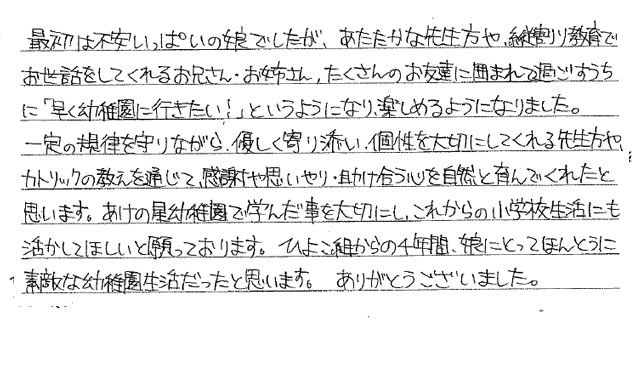 最初は不安いっぱいの娘でしたが、あたたかな先生方や、縦割り教育で
お世話をしてくれるお兄さん・お姉さん、たくさんのお友達に囲まれて過ごすうち
に「早く幼稚園に行きたい！」というようになり、楽しめるようになりました。
一定の規律を守りながら、優しく寄り添い、個性を大切にしてくれる先生方や、
カトリックの教えを通じて、感謝や思いやり・助け合う心を自然と育んでくれたと
思います。あけの星幼稚園で学んだ事を大切にし、これからの小学校生活にも
活かしてほしいと願っております。ひよこ組からの4年間、娘にとってほんとうに
素敵な幼稚園生活だったと思います。 ありがとうございました。